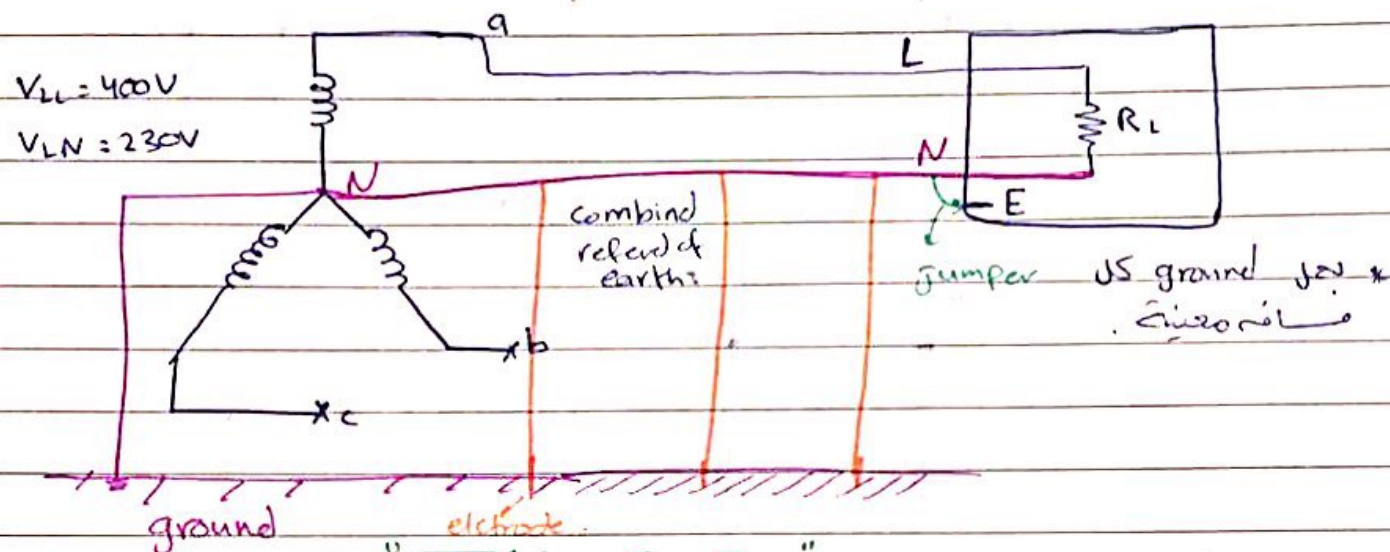 a
V_LL = 400V
V_LN = 230V
L
R_L
N
N
E
combind
earth:
jumper
* نعمل ground كل
مسافة معينة.
b
c
ground
elctrode